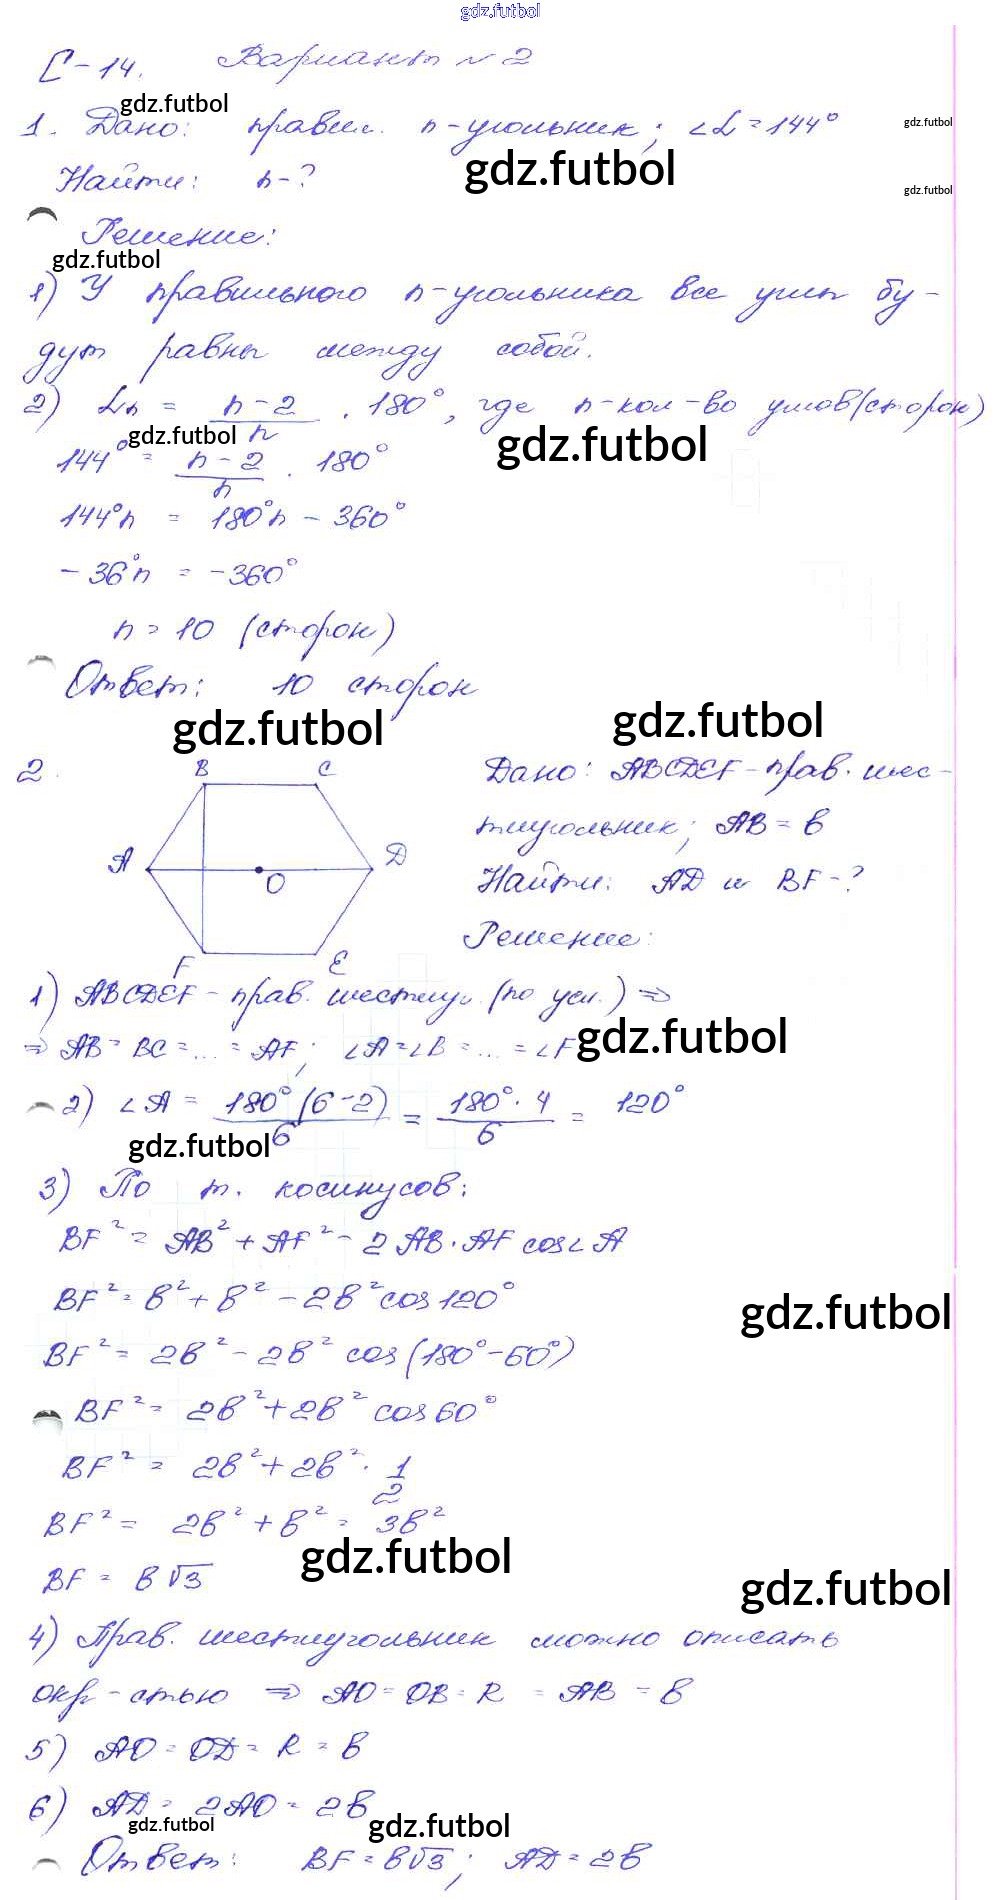 gdz.futbol
С-14. Вариант №2
gdz.futbol
1. Дано: правил. n-угольник; ∠α = 144°
gdz.futbol
gdz.futbol
Найти: n-?
gdz.futbol
Решение:
gdz.futbol
1) У правильного n-угольника все углы бу-
дут равны между собой.
2) αn = (n-2)/n · 180°, где n-кол-во углов (сторон)
gdz.futbol
gdz.futbol
144° = (n-2)/n · 180°
144°n = 180°n - 360°
-36°n = -360°
n = 10 (сторон)
Ответ: 10 сторон
gdz.futbol
gdz.futbol
2.
B C
A D
O
F E
Дано: ABCDEF - прав. шес-
тиугольник; AB = в
Найти: AD и BF-?
Решение:
1) ABCDEF - прав. шестиуг. (по усл.) ⇒
⇒ AB = BC = ... = AF; ∠A = ∠B = ... = ∠F
gdz.futbol
2) ∠A = 180°(6-2)/6 = 180°·4/6 = 120°
gdz.futbol
3) По т. косинусов:
BF² = AB² + AF² - 2AB·AF cos∠A
BF² = в² + в² - 2в² cos 120°
gdz.futbol
BF² = 2в² - 2в² cos(180°-60°)
BF² = 2в² + 2в² cos 60°
BF² = 2в² + 2в² · 1/2
BF² = 2в² + в² = 3в²
gdz.futbol
BF = в√3
gdz.futbol
4) Прав. шестиугольник можно описать
окр-стью ⇒ AO = OB = R = AB = в
5) AO = OD = R = в
6) AD = 2AO = 2в
gdz.futbol
gdz.futbol
Ответ: BF = в√3; AD = 2в